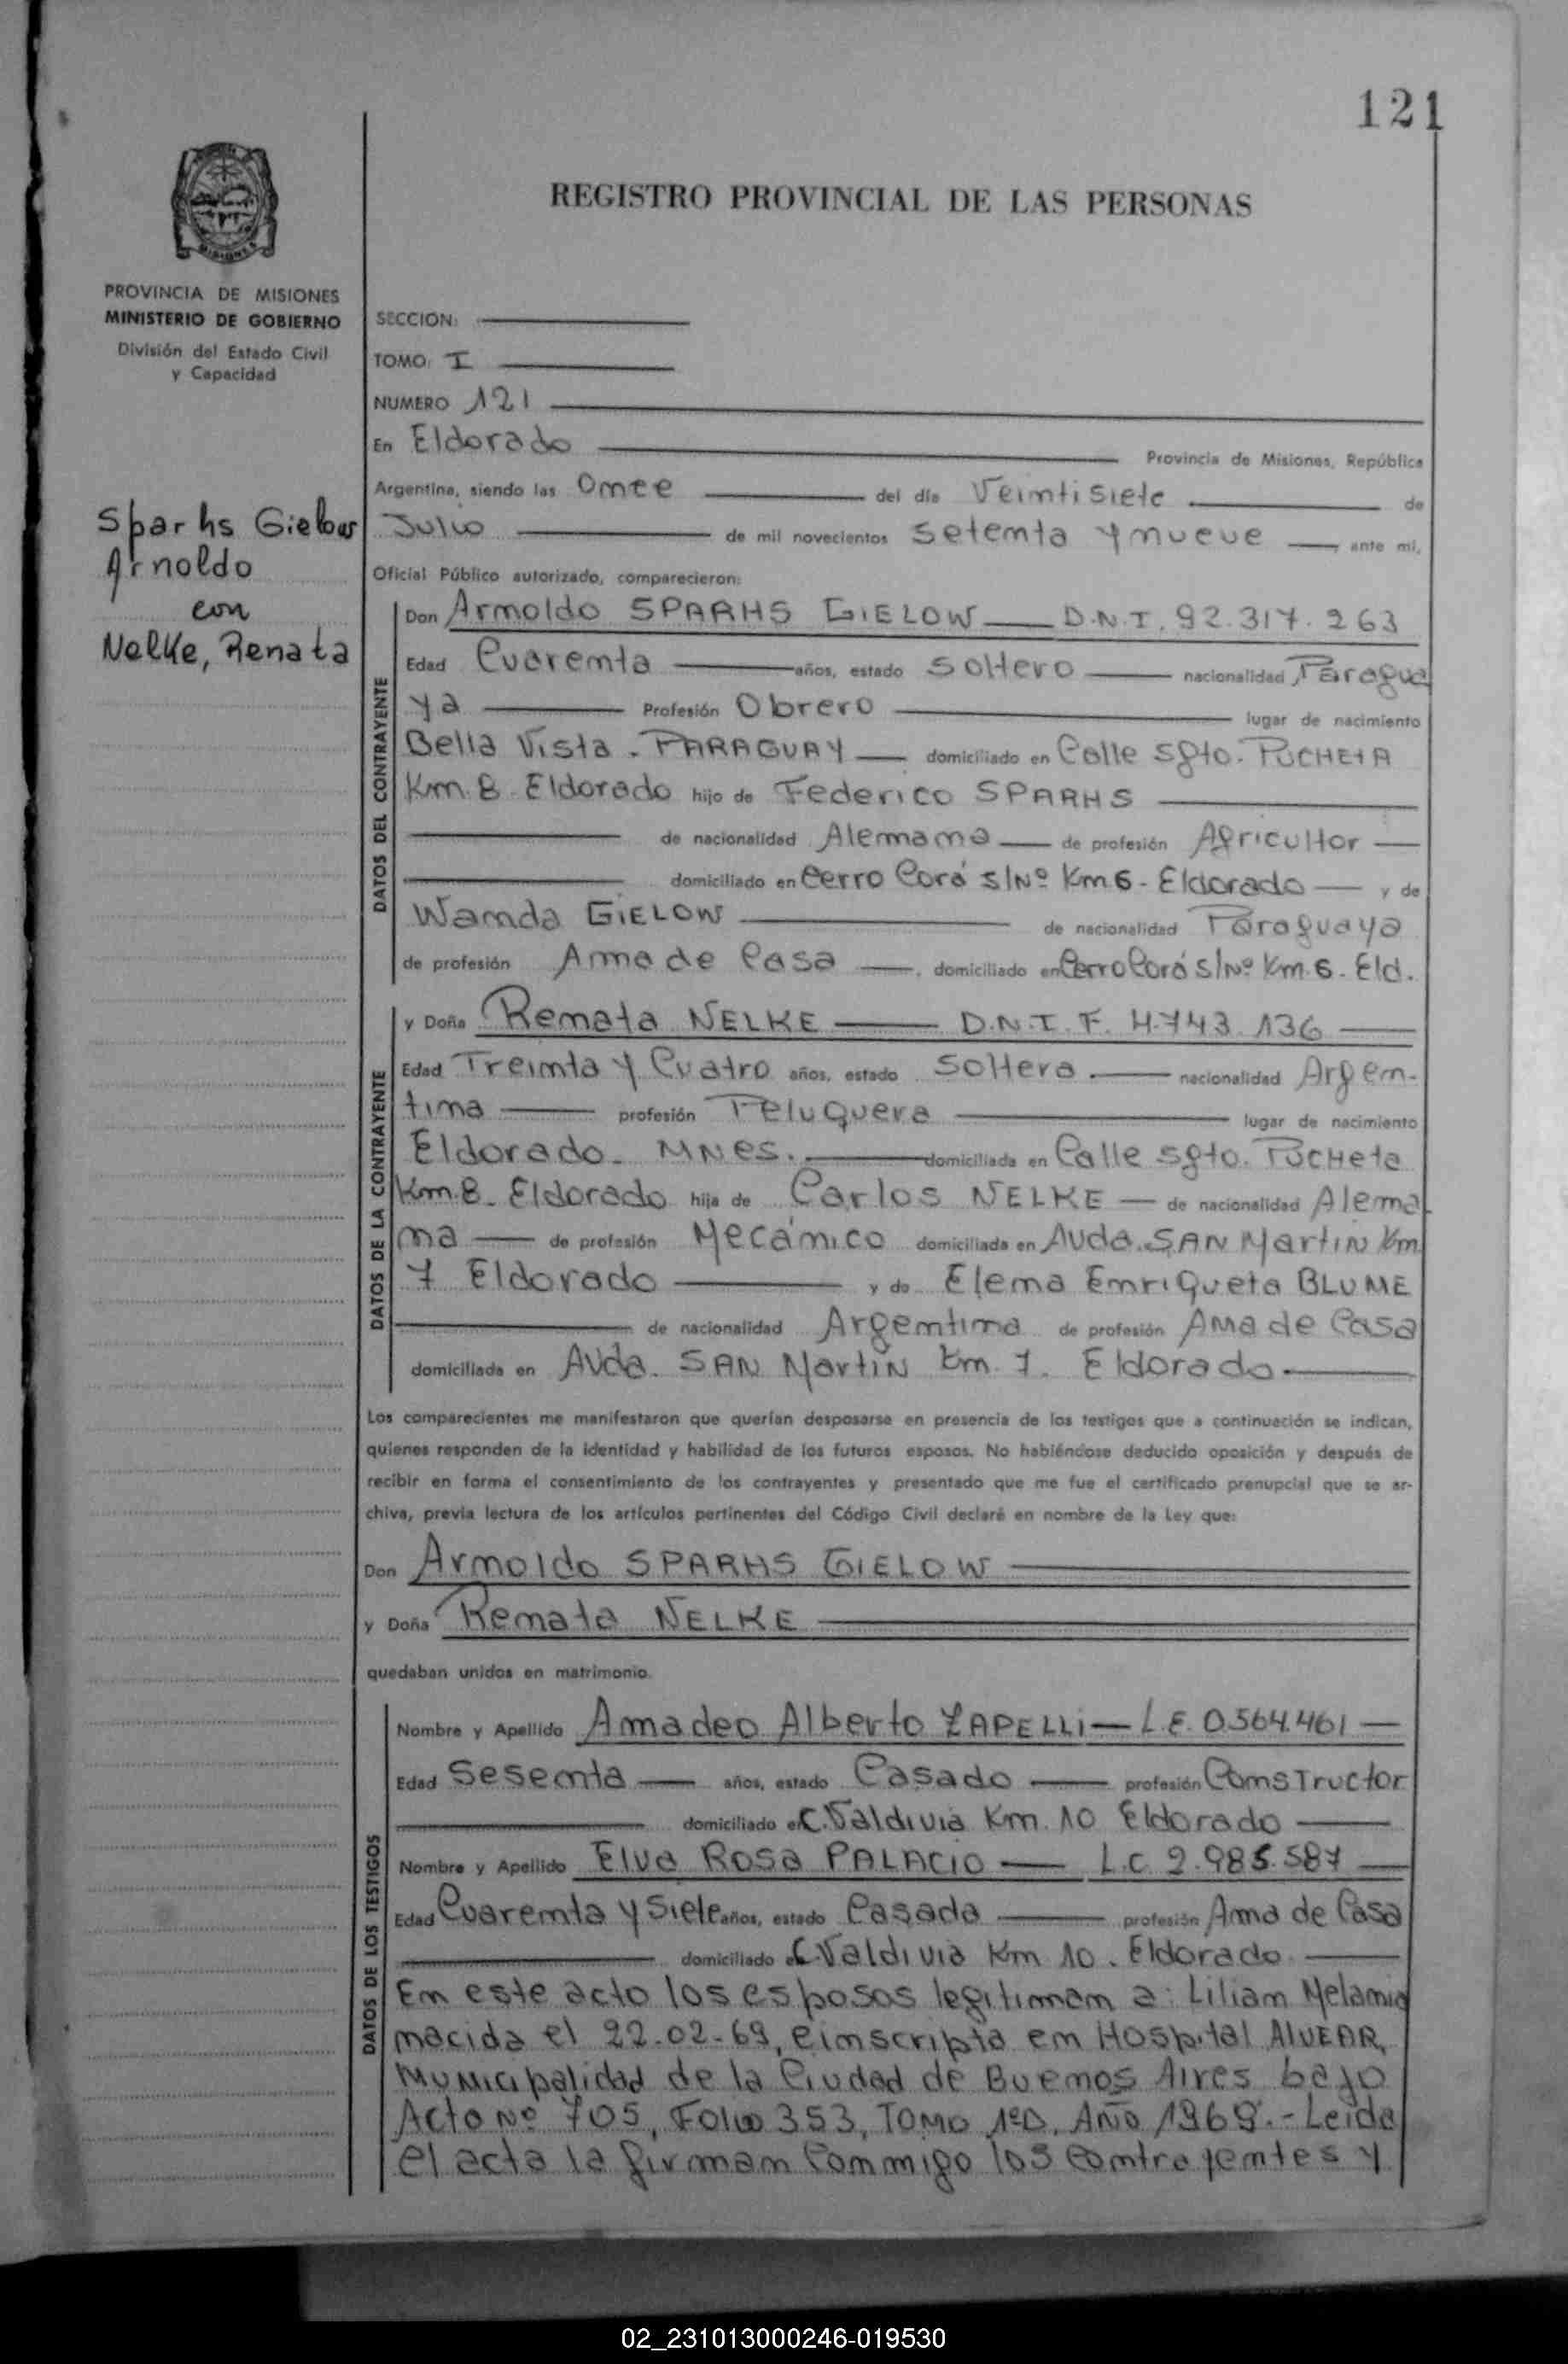 121
REGISTRO PROVINCIAL DE LAS PERSONAS
PROVINCIA DE MISIONES
MINISTERIO DE GOBIERNO
División del Estado Civil
y Capacidad
Sparhs Gielow
Arnoldo
con
Nelke, Renata
SECCION:
TOMO: I
NUMERO 121
En Eldorado Provincia de Misiones, República
Argentina, siendo las Once del día Veintisiete de
Julio de mil novecientos setenta y nueve ante mi,
Oficial Público autorizado, comparecieron:
DATOS DEL CONTRAYENTE
Don Arnoldo SPARHS GIELOW D.N.I. 92.317.263
Edad Cuarenta años, estado soltero nacionalidad Paragua
ya Profesión Obrero lugar de nacimiento
Bella Vista - PARAGUAY domiciliado en Calle sgto. PUCHETA
Km. 8 - Eldorado hijo de Federico SPARHS
de nacionalidad Alemana de profesión Agricultor
domiciliado en Cerro Corá s/Nº Km 6 - Eldorado y de
Wanda GIELOW de nacionalidad Paraguaya
de profesión Ama de Casa, domiciliado en Cerro Corá s/Nº Km. 6 - Eld.
DATOS DE LA CONTRAYENTE
y Doña Renata NELKE D.N.I. F. 4.743.136
Edad Treinta y Cuatro años, estado soltera nacionalidad Argen-
tina profesión Peluquera lugar de nacimiento
Eldorado - MNES. domiciliada en Calle sgto. PUCHeta
Km. 8 - Eldorado hija de Carlos NELKE de nacionalidad Alema
na de profesión Mecánico domiciliada en Avda. SAN Martin Km
7 Eldorado y de Elena Enriqueta BLUME
de nacionalidad Argentina de profesión Ama de Casa
domiciliada en Avda. SAN Martin Km. 7. Eldorado
Los comparecientes me manifestaron que querían desposarse en presencia de los testigos que a continuación se indican,
quienes responden de la identidad y habilidad de los futuros esposos. No habiéndose deducido oposición y después de
recibir en forma el consentimiento de los contrayentes y presentado que me fue el certificado prenupcial que se ar-
chiva, previa lectura de los artículos pertinentes del Código Civil declaré en nombre de la Ley que:
Don Arnoldo SPARHS GIELOW
y Doña Renata NELKE
quedaban unidos en matrimonio.
DATOS DE LOS TESTIGOS
Nombre y Apellido Amadeo Alberto ZAPELLI - L.E. 0.564.461
Edad Sesenta años, estado Casado profesión Constructor
domiciliado en C. Valdivia Km. 10 Eldorado
Nombre y Apellido Elva Rosa PALACIO L.C. 2.985.587
Edad Cuarenta y Siete años, estado Casada profesión Ama de Casa
domiciliado en C. Valdivia Km 10. Eldorado
En este acto los esposos legitiman a: Lilian Melania
nacida el 22-02-69, e inscripta en Hospital AlVEAR,
Municipalidad de la Ciudad de Buenos Aires bajo
Acto Nº 705, Folio 353, TOMO 1ºD, Año 1969.- Leida
el acta la firman Conmigo los contrayentes y
02_231013000246-019530